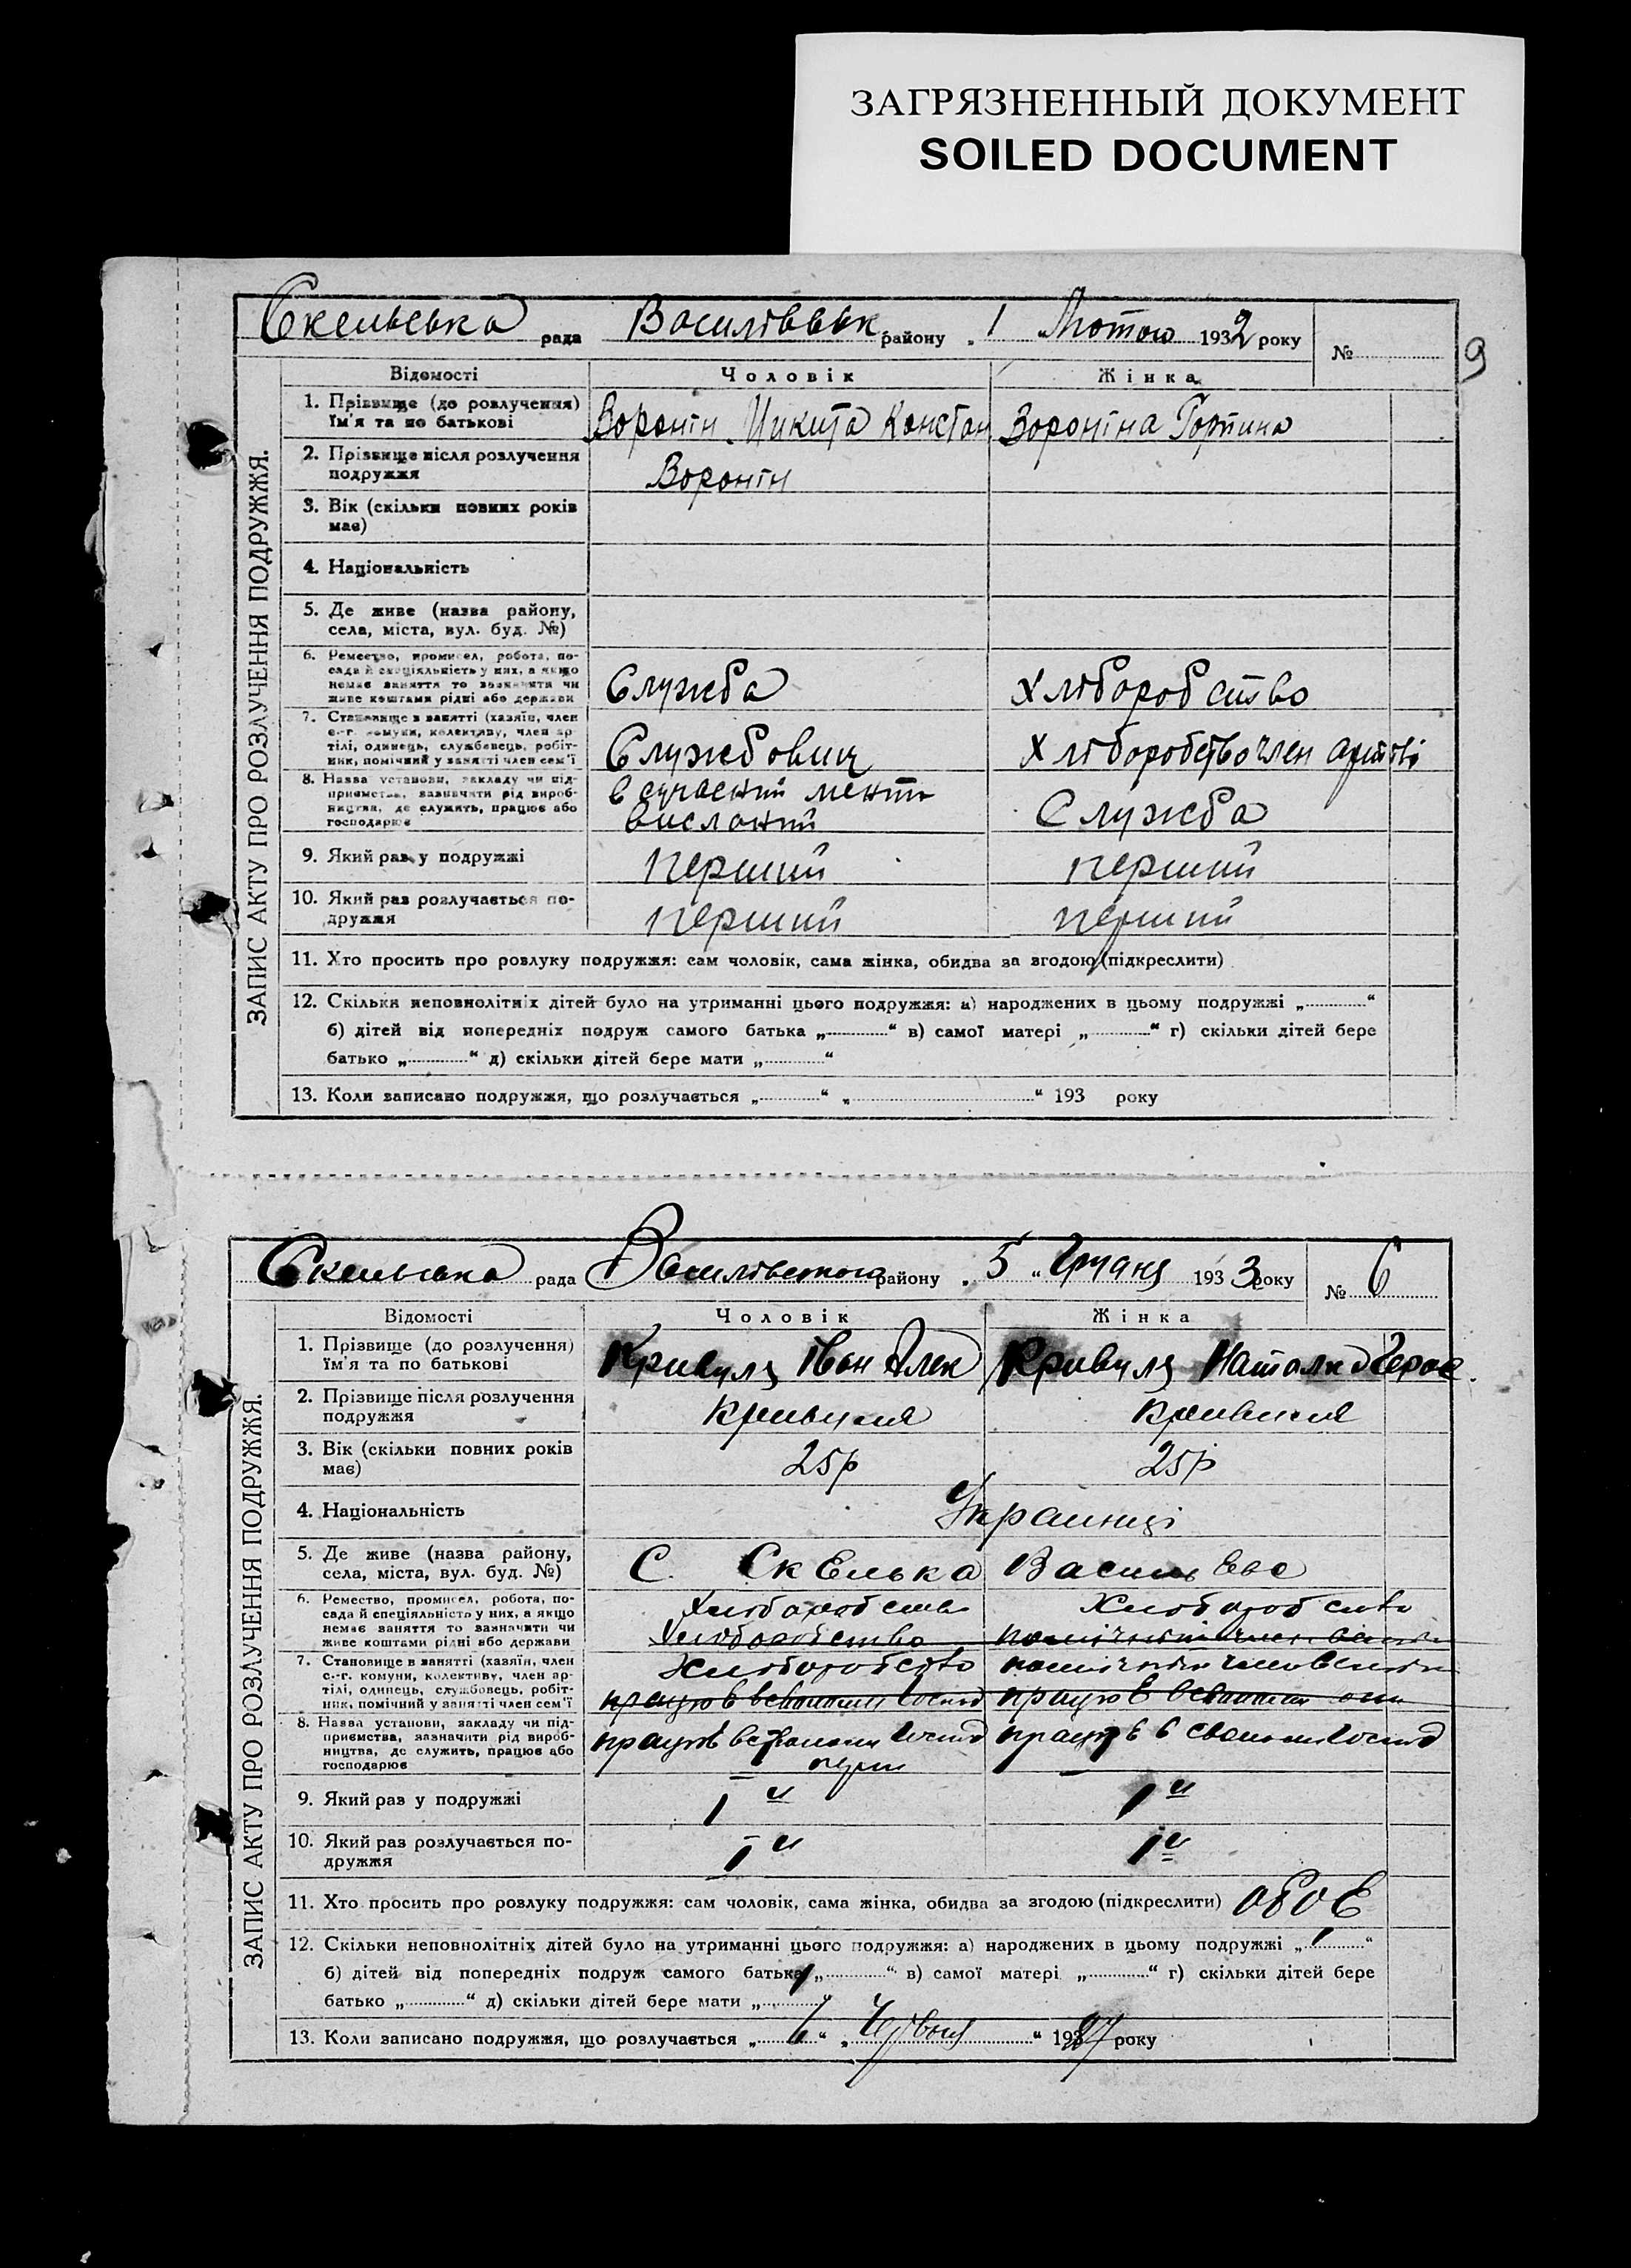 ЗАГРЯЗНЕННЫЙ ДОКУМЕНТ
SOILED DOCUMENT
Скельська рада Василівськ. району „1 Лютого 1932 року №
9
ЗАПИС АКТУ ПРО РОЗЛУЧЕННЯ ПОДРУЖЖЯ.
Відомості Чоловік Жінка
1. Прізвище (до розлучення) Воронін Никита Констан Вороніна Горпина
ім'я та по батькові
2. Прізвище після розлучення Воронін
подружжя
3. Вік (скільки повних років
має)
4. Національність
5. Де живе (назва району,
села, міста, вул. буд. №)
6. Ремество, промисел, робота, по-
сада й спеціяльність у них, а якщо
немає заняття то зазначити чи Служба Хліборобство
живе коштами рідні або держави
7. Становище в занятті (хазяїн, член
с.-г. комуни, колективу, член ар-
тілі, одинець, службовець, робіт- Службовиц Хліборобство член артілі
ник, помічний у занятті член сем'ї
8. Назва установи, закладу чи під- в сучасний мент
приємства, зазначити рід вироб-
ництва, де служить, працює або висланий Служба
господарює
9. Який раз у подружжі перший перший
10. Який раз розлучається по- перший перший
дружжя
11. Хто просить про розлуку подружжя: сам чоловік, сама жінка, обидва за згодою (підкреслити)
12. Скільки неповнолітніх дітей було на утриманні цього подружжя: а) народжених в цьому подружжі „ “
б) дітей від попередніх подруж самого батька „ “ в) самої матері „ “ г) скільки дітей бере
батько „ “ д) скільки дітей бере мати „ “
13. Коли записано подружжя, що розлучається „ “ „ “ 193 року
Скельська рада Василівського району „5 “ 1933 року № 6
ЗАПИС АКТУ ПРО РОЗЛУЧЕННЯ ПОДРУЖЖЯ.
Відомості Чоловік Жінка
1. Прізвище (до розлучення) Кривуля Іван Алек Кривуля Наталка Герас
ім'я та по батькові
2. Прізвище після розлучення Кривуля Кривуля
подружжя
3. Вік (скільки повних років 25р 25р
має)
4. Національність Украинці
5. Де живе (назва району, С. СкЕлька Василь Ева
села, міста, вул. буд. №)
6. Ремество, промисел, робота, по- Хліборобство Хліборобство
сада й спеціяльність у них, а якщо
немає заняття то зазначити чи Хліборобство
живе коштами рідні або держави
7. Становище в занятті (хазяїн, член Хліборобство помічний
с.-г. комуни, колективу, член ар-
тілі, одинець, службовець, робіт- працює в своиом господ працює в своиом
ник, помічний у занятті член сем'ї
8. Назва установи, закладу чи під- працює в своиом господ працює в своиом господ
приємства, зазначити рід вироб-
ництва, де служить, працює або
господарює
9. Який раз у подружжі 1й 1й
10. Який раз розлучається по- 1й 1й
дружжя
11. Хто просить про розлуку подружжя: сам чоловік, сама жінка, обидва за згодою (підкреслити) обоЕ
12. Скільки неповнолітніх дітей було на утриманні цього подружжя: а) народжених в цьому подружжі „1“
б) дітей від попередніх подруж самого батька „ “ в) самої матері „ “ г) скільки дітей бере
батько „ “ д) скільки дітей бере мати „ “
13. Коли записано подружжя, що розлучається „6“ „Червня “ 1927 року